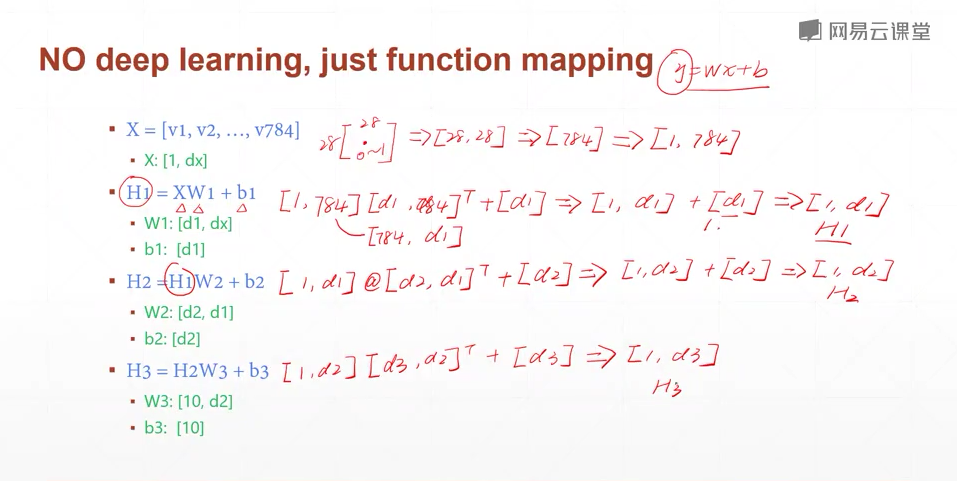 网易云课堂
NO deep learning, just function mapping
y=wx+b
X = [v1, v2, …, v784]
28
28[ 0~1 ] => [28, 28] => [784] => [1, 784]
X: [1, dx]
H1 = XW1 + b1
[1, 784] [d1, 784]ᵀ + [d1] => [1, d1] + [d1] => [1, d1]
1.
H1
W1: [d1, dx]
[784, d1]
b1: [d1]
H2 =H1W2 + b2
[1, d1] @ [d2, d1]ᵀ + [d2] => [1, d2] + [d2] => [1, d2]
H2
W2: [d2, d1]
b2: [d2]
H3 = H2W3 + b3
[1, d2] [d3, d2]ᵀ + [d3] => [1, d3]
H3
W3: [10, d2]
b3: [10]